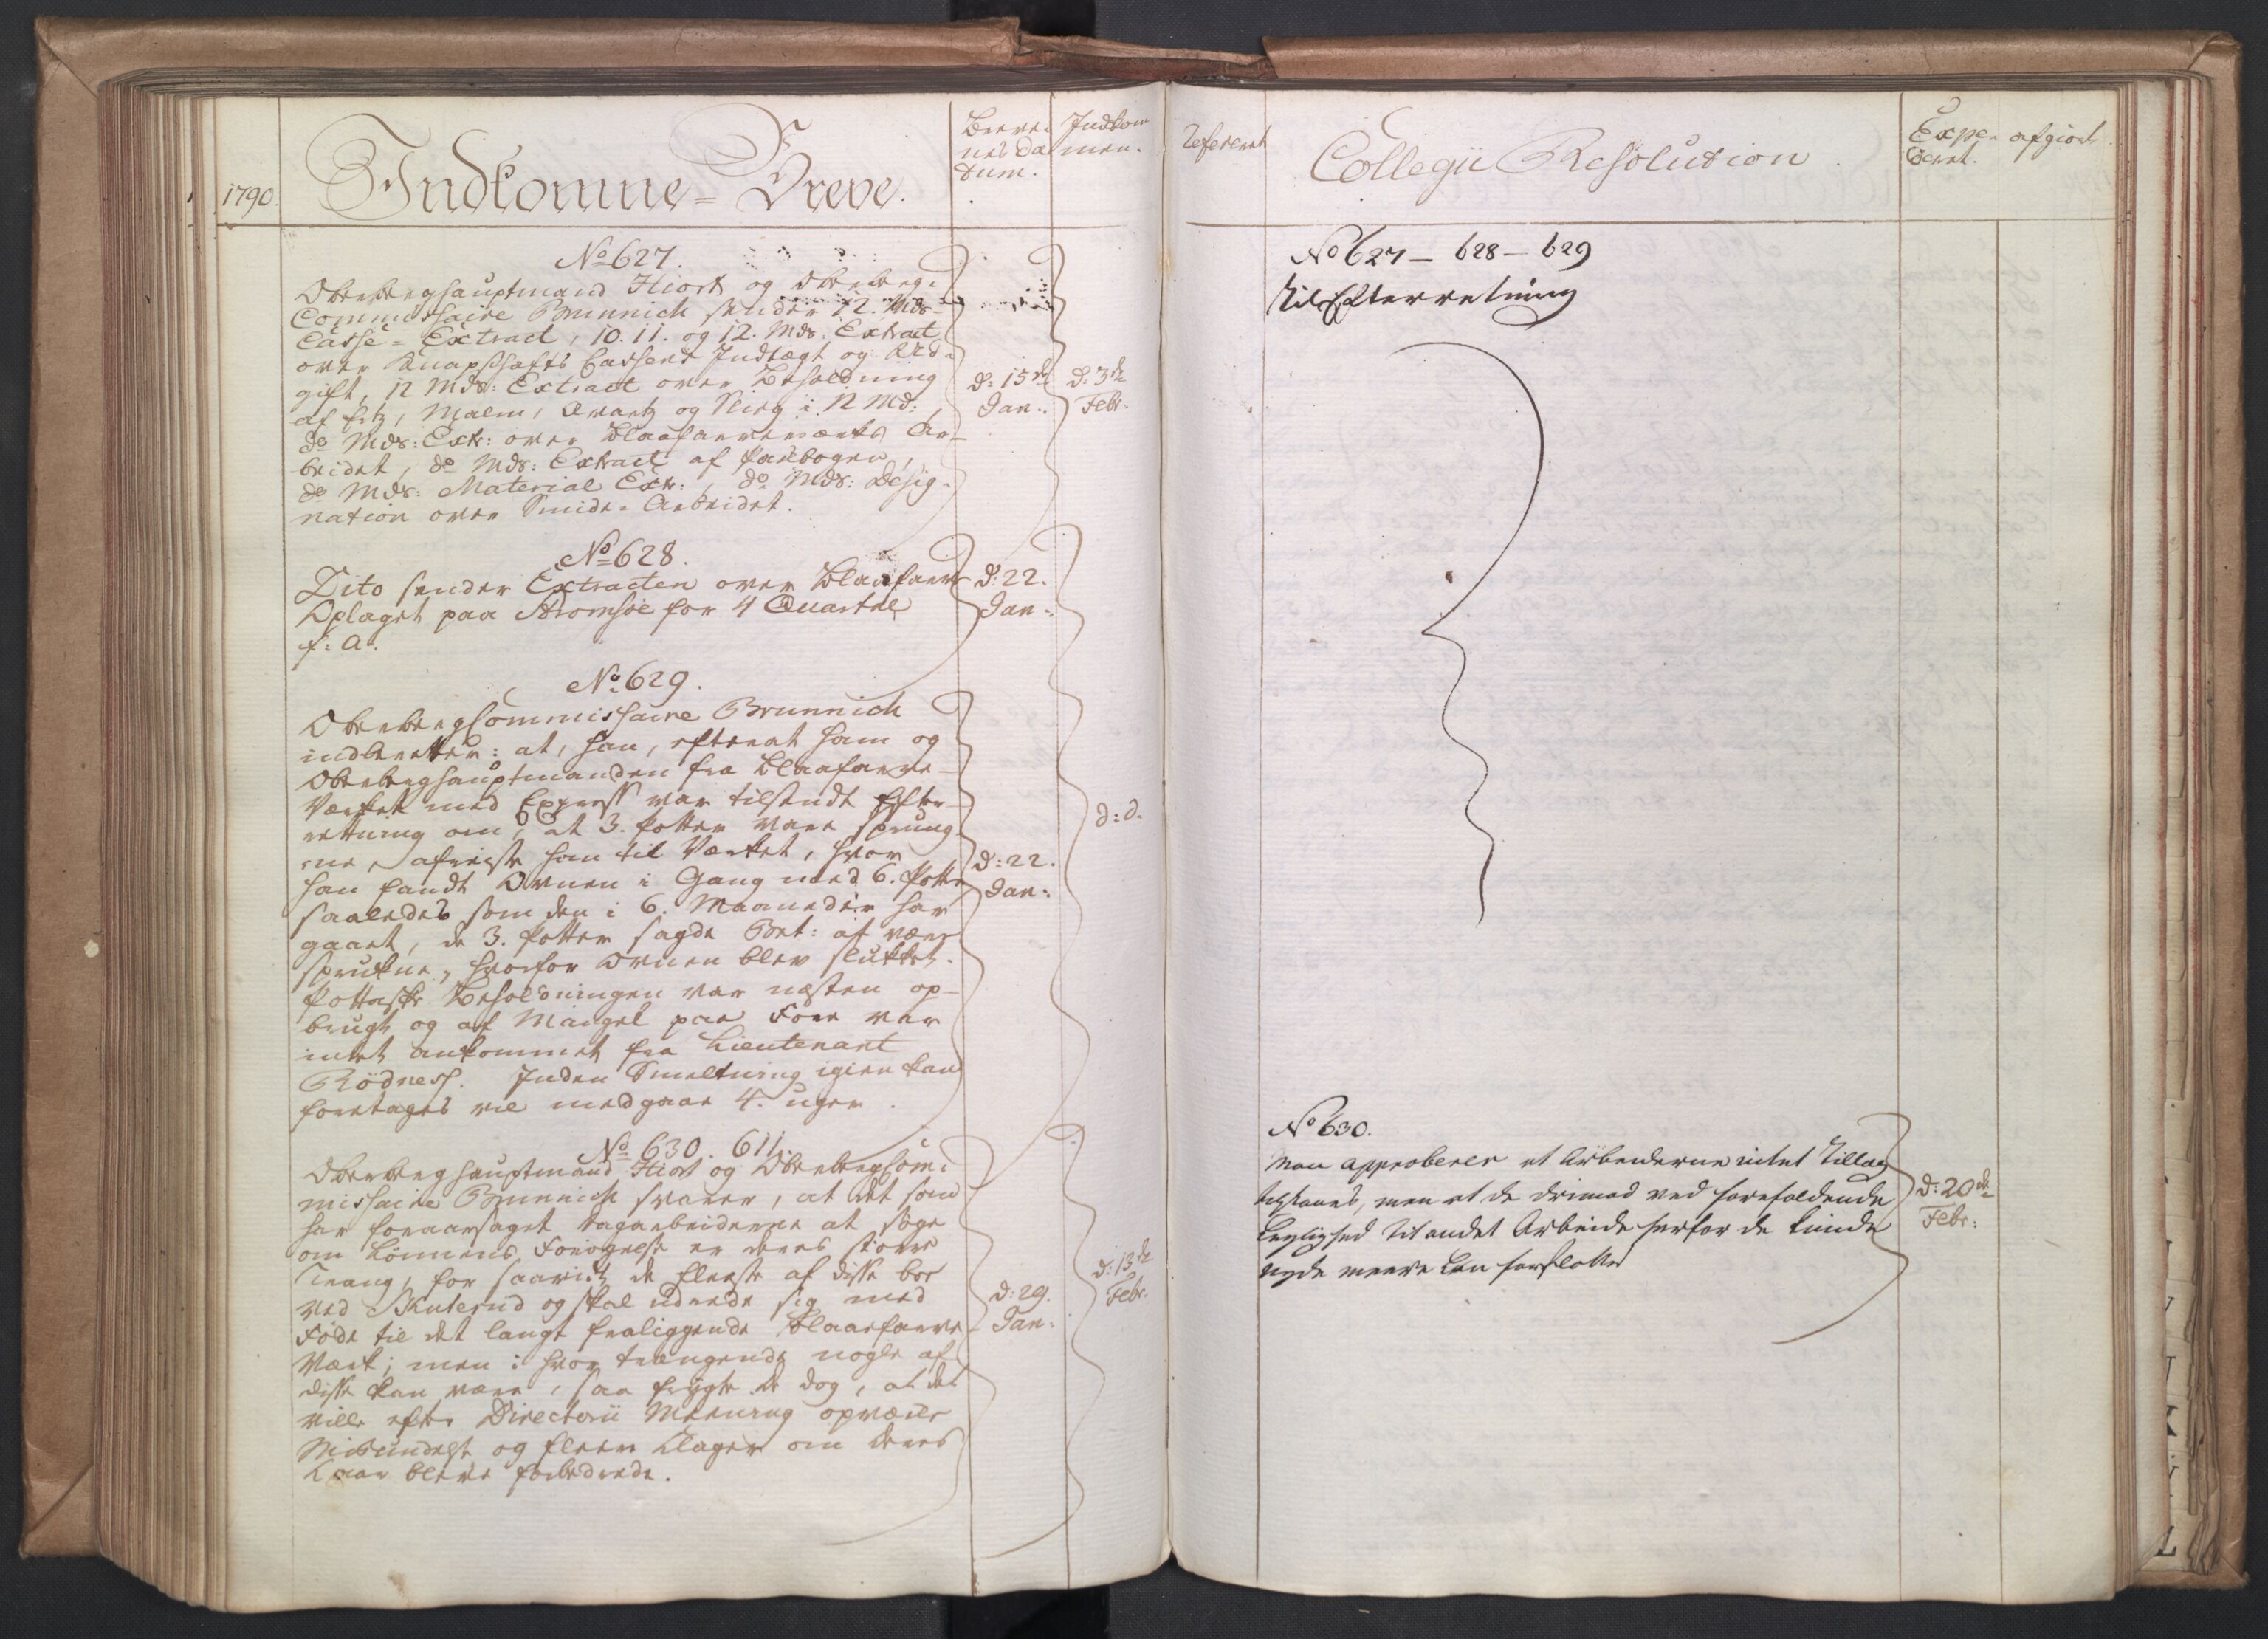 1790.
Indkomne=Breve.
Breve-
nes Da
tum.
Indkom
men.
No 627.
Oberberghauptmand Hiort og Oberberg-
Commissaire Brunnich sender 12. Mds-
Casse=Extract, 10. 11. og 12. Mds: Extract
over Knapschafts Cassens Indtægt og Ud-
gift, 12 Mds: Extract over Beholdning
af Ertz, Malm, Qvartz og Slieg i 12 Md:,
do Mds: Extr: over Blaafarveværkets Ar-
beidet, do Mds: Extract af
do Mds: Material Extr:, do Mds: Desig-
nation over Smide-Arbeidet.
d: 15de
Jan:
d: 3de
Febr.
No 628.
Dito sender Extracten over Blaafarve
Oplaget paa Stromsöe for 4 Quartal
f: A.
d: 22.
Jan:
No 629.
OberbergCommissaire Brunnich
indberetter: at, han, efterat ham og
Oberberghauptmanden fra Blaafarve-
Værket med Express var tilsendt Efter-
retning om, at 3. Potter vare sprung-
ne, afreiste han til Værket, hvor
han fandt Ovnen i Gang med 6. Potter
saaledes som den i 6. Maaneder har
gaaet, de 3. Potter sagde Bet: at være
sprukne, hvorfor Ovnen blev slukket.
Pottaske Beholdningen var næsten op-
brugt og af Mangel paa Före var
intet ankommet fra Lieutenant
Rödness. Inden Smeltning igien kan
foretages vil medgaae 4. uger.
d: 22.
Jan:
d: d.
No 630. 611.
Oberberghauptmand Hiort og Obebergcom-
missaire Brunnich svarer, at det som
har foraarsaget Dagarbeiderne at söge
om Lönnens Forögelse er deres större
Trang, for saavidt de fleeste af disse boe
ved Skuterud og skal udrede sig med
Föde til det langt fraliggende Blaaefarve-
Værk; men i hvor trængende nogle af
disse kan være, saa frygte de dog, at det
ville efter Directorii Meening opvække
Misundelse og fleere Klager om deres
Kaar bleve forbedrede.
d: 29.
Jan:
d: 13de
Febr.
Referent
Collegii Resolution.
Expe-
deret.
afgiort
No 627 - 628 - 629
til Efterretning
No 630.
Man approberer at Arbeiderne intet Tillæg
tilstaaes, men at de derimod ved forefaldende
Leylighed til andet Arbeide herfor de kunde
nyde meere Løn forflottes
d: 20de
Febr: